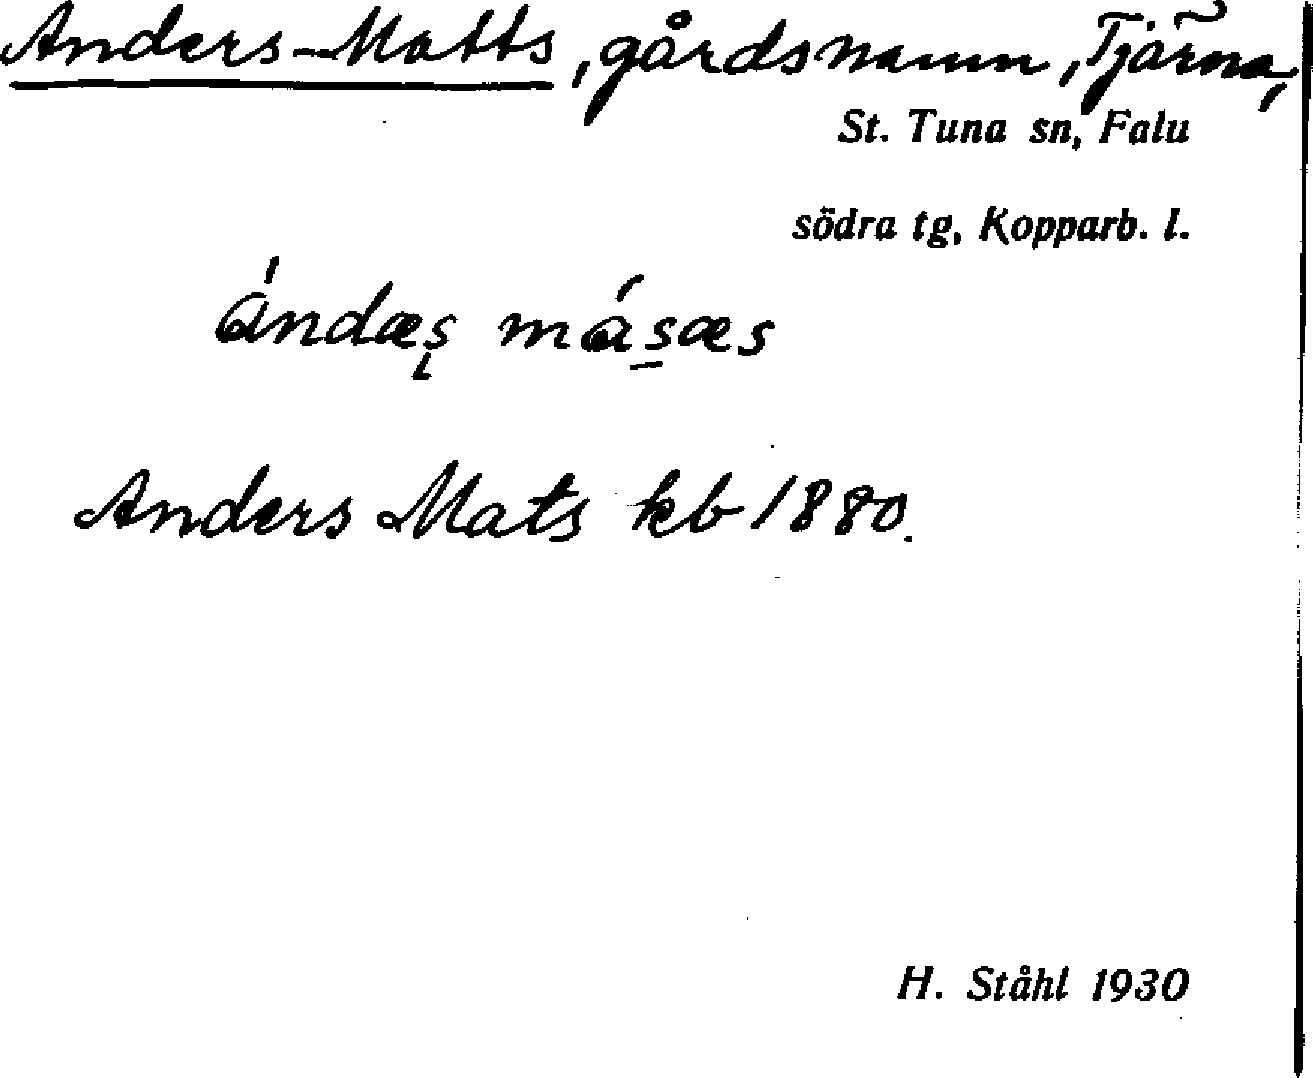 Anders-Matts, gårdsnamn, Tjärna,
St. Tuna sn, Falu
södra tg, Kopparb. l.
ándæs̨ má̱sæs
Anders Mats kb 1880.
H. Ståhl 1930